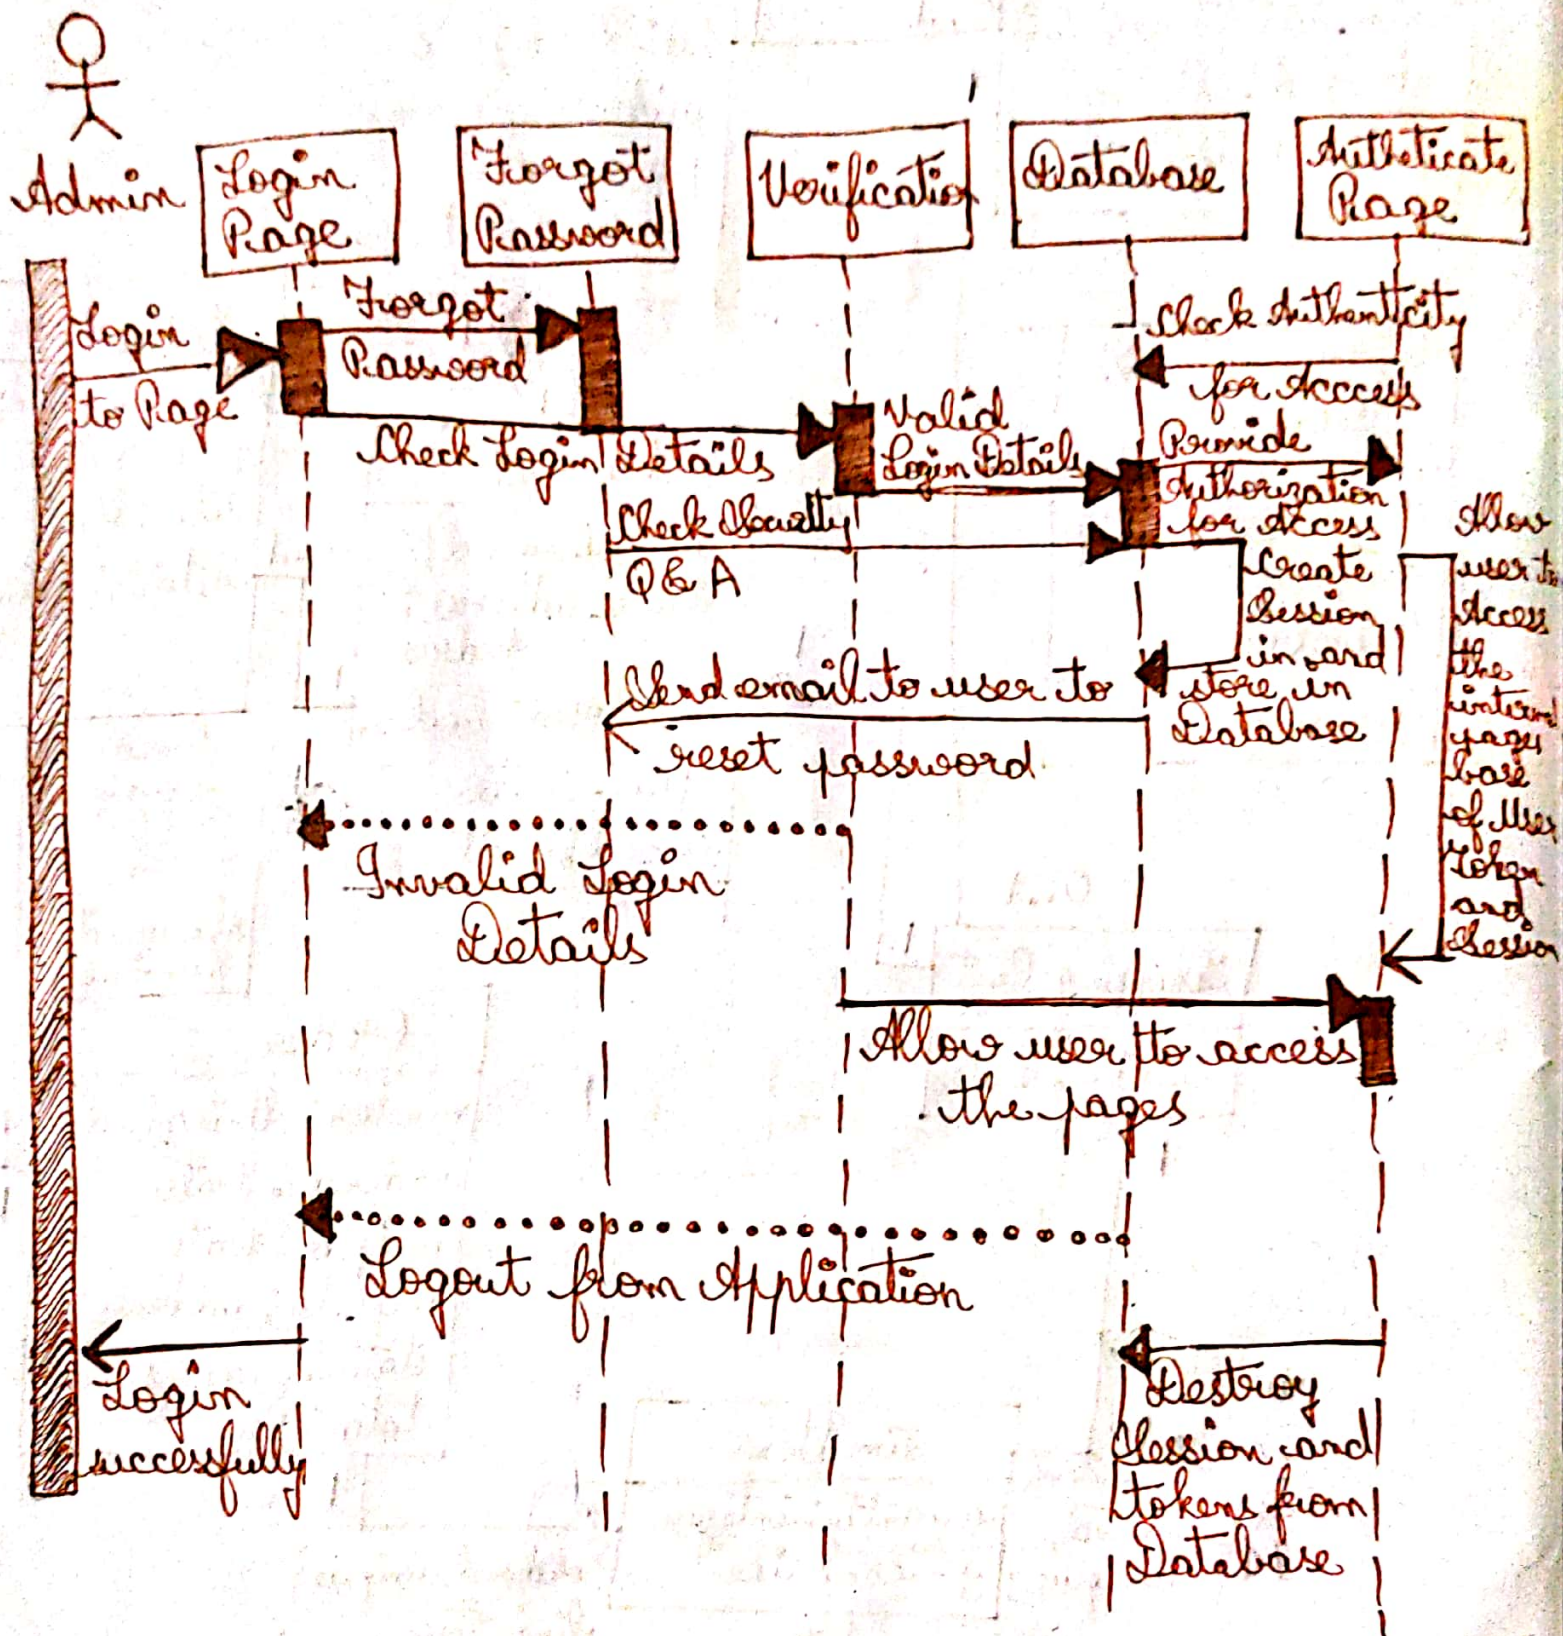 Admin
Login
Page
Forgot
Password
Verification
Database
Autheticate
Page
Login
to Page
Forgot
Password
Check Authenticity
for Acccess
Check Login Details
Valid
Login Details
Provide
Authorization
for Access
Check Security
Q & A
Create
Session
in and
store in
Database
Allow
user to
Access
the
internal
pages
base
of User
Token
and
Session
Send email to user to
reset password
Invalid Login
Details
Allow user to access
the pages
Logout from Application
Login
successfully
Destroy
Session and
tokens from
Database